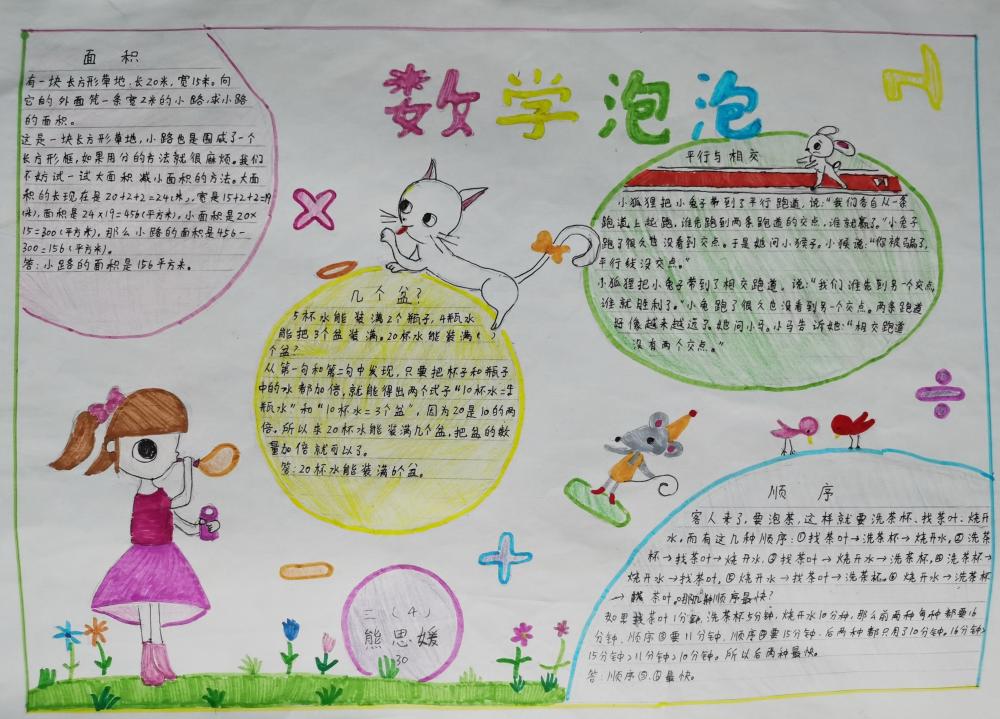 数学泡泡
面 积
有一块长方形草地,长20米,宽15米。向
它的外面筑一条宽2米的小路,求小路
的面积。
这是一块长方形草地,小路也是围成了一个
长方形框,如果用分的方法就很麻烦。我们
不妨试一试大面积减小面积的方法。大面
积的长现在是20+2+2=24(米),宽是15+2+2=19
(米),面积是24×19=456(平方米)。小面积是20×
15=300(平方米)。那么小路的面积是456-
300=156(平方米)。
答:小路的面积是156平方米。
几个盆?
5杯水能装满2个瓶子,4瓶水
能把3个盆装满。20杯水能装满( )
个盆?
从第一句和第二句中发现,只要把杯子和瓶子
中的水都加倍,就能得出两个式子“10杯水=4
瓶水”和“10杯水=3个盆”,因为20是10的两
倍。所以求20杯水能装满几个盆,把盆的数
量加倍就可以了。
答:20杯水能装满6个盆。
平行与相交
小狐狸把小兔子带到了平行跑道,说:“我们各自从一条
跑道上起跑,谁先跑到两条跑道的交点,谁就赢了。”小兔子
跑了很久也没看到交点。于是她问小猴子。小猴说:“你被骗了,
平行线没交点。”
小狐狸把小兔子带到了相交跑道,说:“我们谁先到另一个交点,
谁就胜利了。”小兔跑了很久也没看到另一个交点。两条跑道
好像越来越远了。她问小马。小马告诉她:“相交跑道
没有两个交点。”
顺 序
客人来了,要泡茶,这样就要洗茶杯、找茶叶、烧开
水。而有这几种顺序:①找茶叶→洗茶杯→烧开水。②洗茶
杯→找茶叶→烧开水。③找茶叶→烧开水→洗茶杯。④洗茶杯→
烧开水→找茶叶。⑤烧开水→找茶叶→洗茶杯。⑥烧开水→洗茶杯
→找茶叶。哪几种顺序最快?
如果找茶叶1分钟,洗茶杯5分钟,烧开水10分钟。那么前两种每种都要16
分钟、顺序③要11分钟、顺序④要15分钟、后两种都只用了10分钟。16分钟>
15分钟>11分钟>10分钟。所以后两种最快。
答:顺序⑤、⑥最快。
三(4)
熊思媛
30